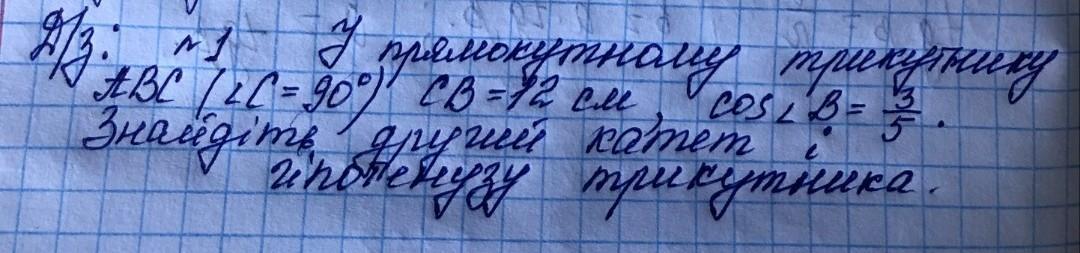 Д/з: №1 У прямокутному трикутнику
ABC (∠C = 90°) CB = 12 см, cos∠B = 3/5.
Знайдіть другий катет і
гіпотенузу трикутника.